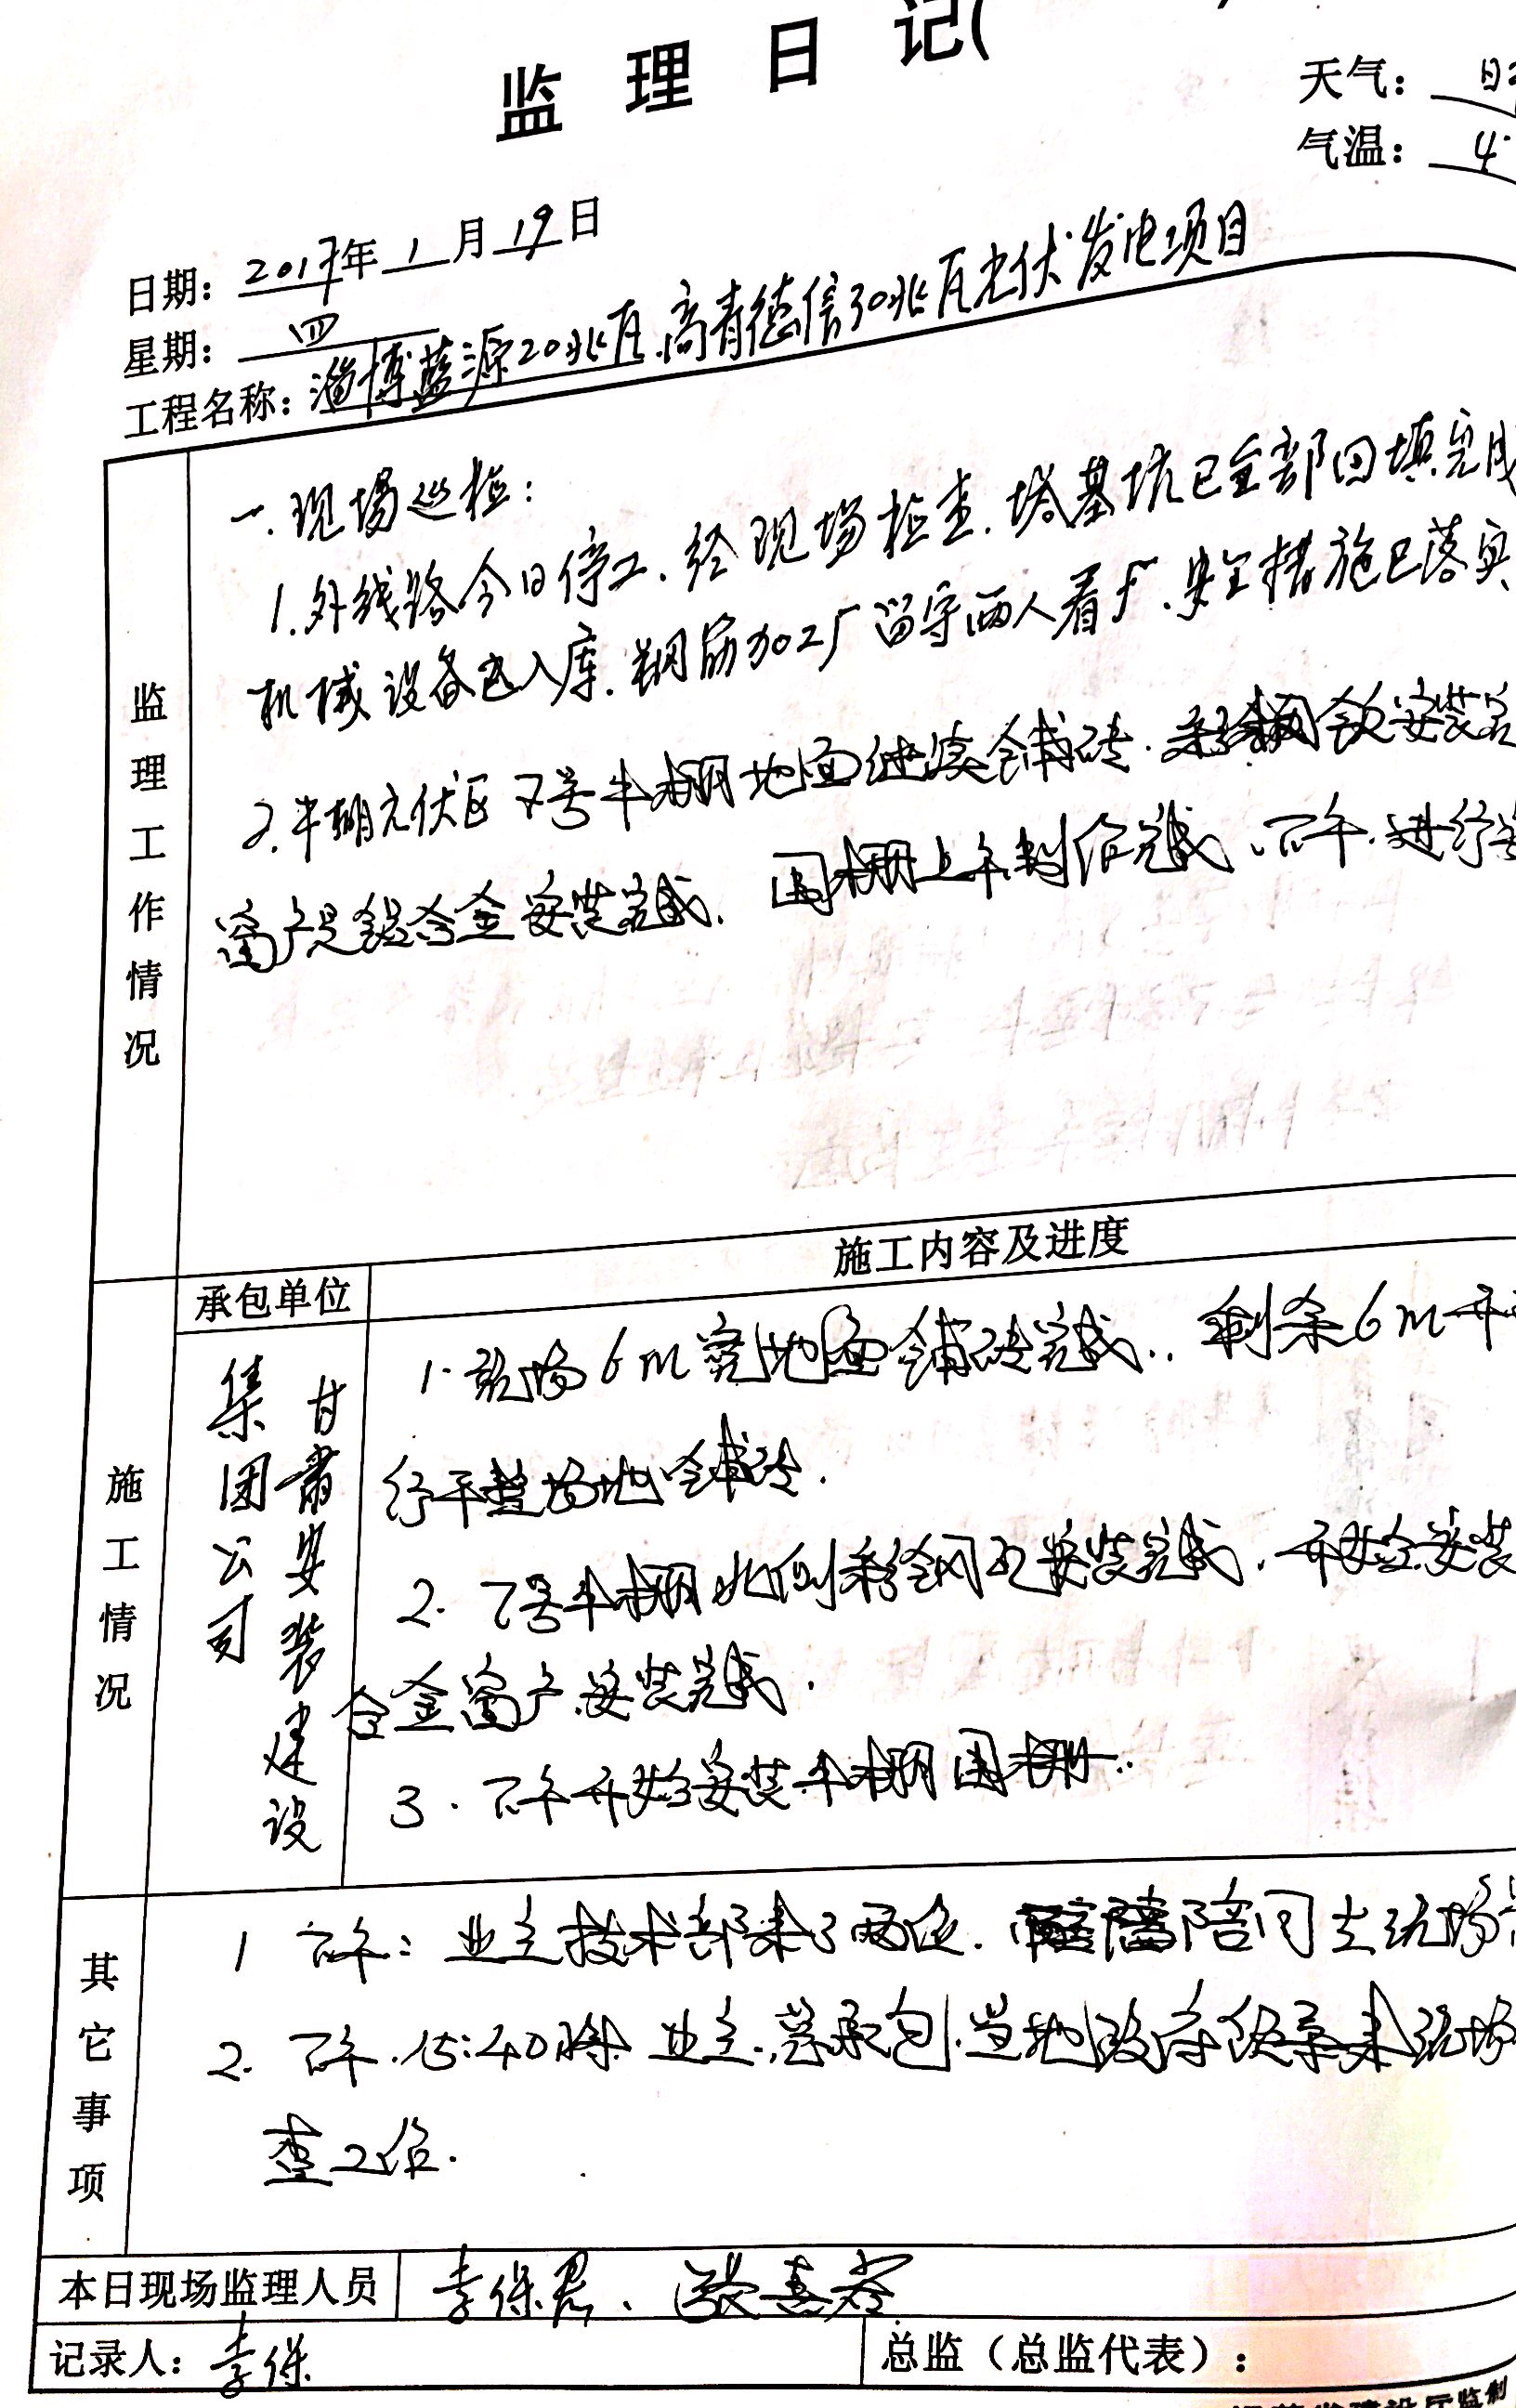 监理日记(
天气：
气温：4
日期：2017年1月19日
星期：四
工程名称：淄博蓝源20兆瓦.高青德信30兆瓦光伏发电项目
监理工作情况
一.现场巡检：
1.外线路今日停工.经现场检查.塔基坑已全部回填完成
机械设备已入库.钢筋加工厂留守两人看厂.安全措施已落实
2.牛棚光伏区7号牛棚地面继续铺砖.安装完
窗户是铝合金安装完成.围栅上午制作完成、下午.进行
施工情况
承包单位
施工内容及进度
甘肃安装建设
集团公司
1.现场6m宽地面铺砖完成.剩余6m开
行平整场地铺砖.
2.7号牛棚北侧彩钢瓦安装完成.开始安装
合金窗户安装完成.
3.下午开始安装牛棚围栅..
其它事项
1 下午：业主技术部来了两位.陪同去现场
2.下午.15:40时.业主.总承包.当地政府领导来现场
查工作.
本日现场监理人员 李保君、张喜
记录人：李保
总监（总监代表）：